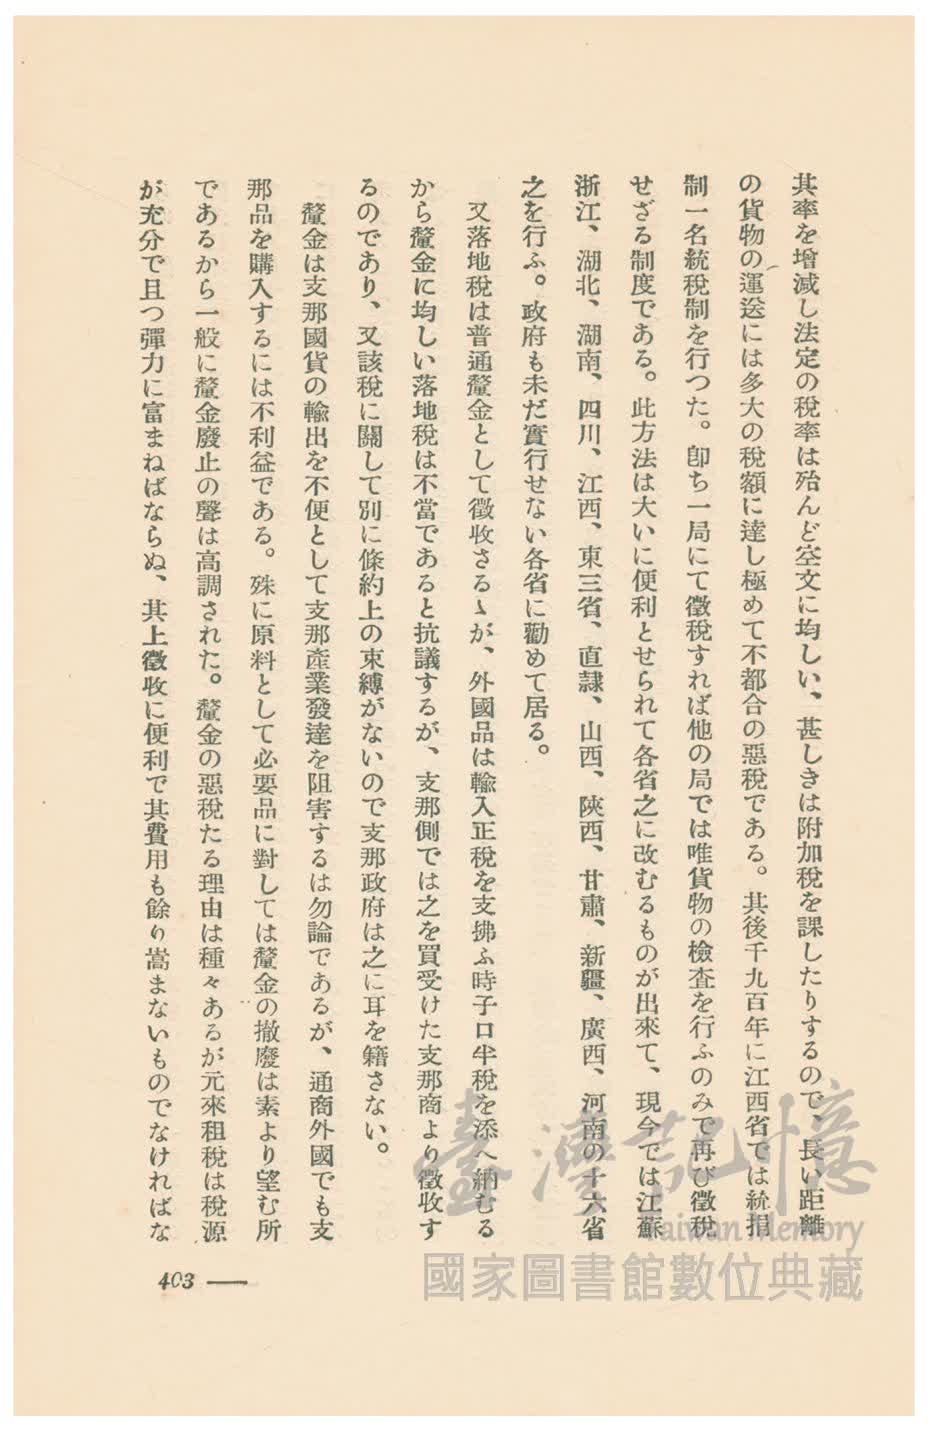 其率を增減し法定の稅率は殆んど空文に均しい、甚しきは附加稅を課したりするので、長い距離
の貨物の運送には多大の稅額に達し極めて不都合の惡稅である。其後千九百年に江西省では統捐
制一名統稅制を行つた。卽ち一局にて徵稅すれば他の局では唯貨物の檢査を行ふのみで再び徵稅
せざる制度である。此方法は大いに便利とせられて各省之に改むるものが出來て、現今では江蘇
浙江、湖北、湖南、四川、江西、東三省、直隷、山西、陝西、甘肅、新疆、廣西、河南の十六省
之を行ふ。政府も未だ實行せない各省に勸めて居る。
又落地稅は普通釐金として徵收さるゝが、外國品は輸入正稅を支拂ふ時子口半稅を添へ納むる
から釐金に均しい落地稅は不當であると抗議するが、支那側では之を買受けた支那商より徵收す
るのであり、又該稅に關して別に條約上の束縛がないので支那政府は之に耳を籍さない。
釐金は支那國貨の輸出を不便として支那產業發達を阻害するは勿論であるが、通商外國でも支
那品を購入するには不利益である。殊に原料として必要品に對しては釐金の撤廢は素より望む所
であるから一般に釐金廢止の聲は高調された。釐金の惡稅たる理由は種々あるが元來租稅は稅源
が充分で且つ彈力に富まねばならぬ、其上徵收に便利で其費用も餘り嵩まないものでなければな
403
臺灣記憶
Taiwan Memory
國家圖書館數位典藏